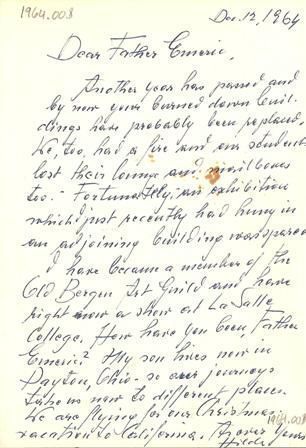 1964.008
Dec. 12, 1964
Dear Father Emeric,
Another year has passed and
by now your burned down buil-
dings have probably been replaced.
We, too, had a fire and our students
lost their lounge and mailboxes
too. - Fortunately, an exhibition
which just recently had hung in
an adjoining building was spared
I have become a member of the
Old Bergen Art Guild and have
right now a show at La Salle
College. How have you been Father
Emeric? My son lives now in
Dayton, Ohio - so our journeys
take us now to different places.
We are flying for our Christmas
vacation to California.
1964.008